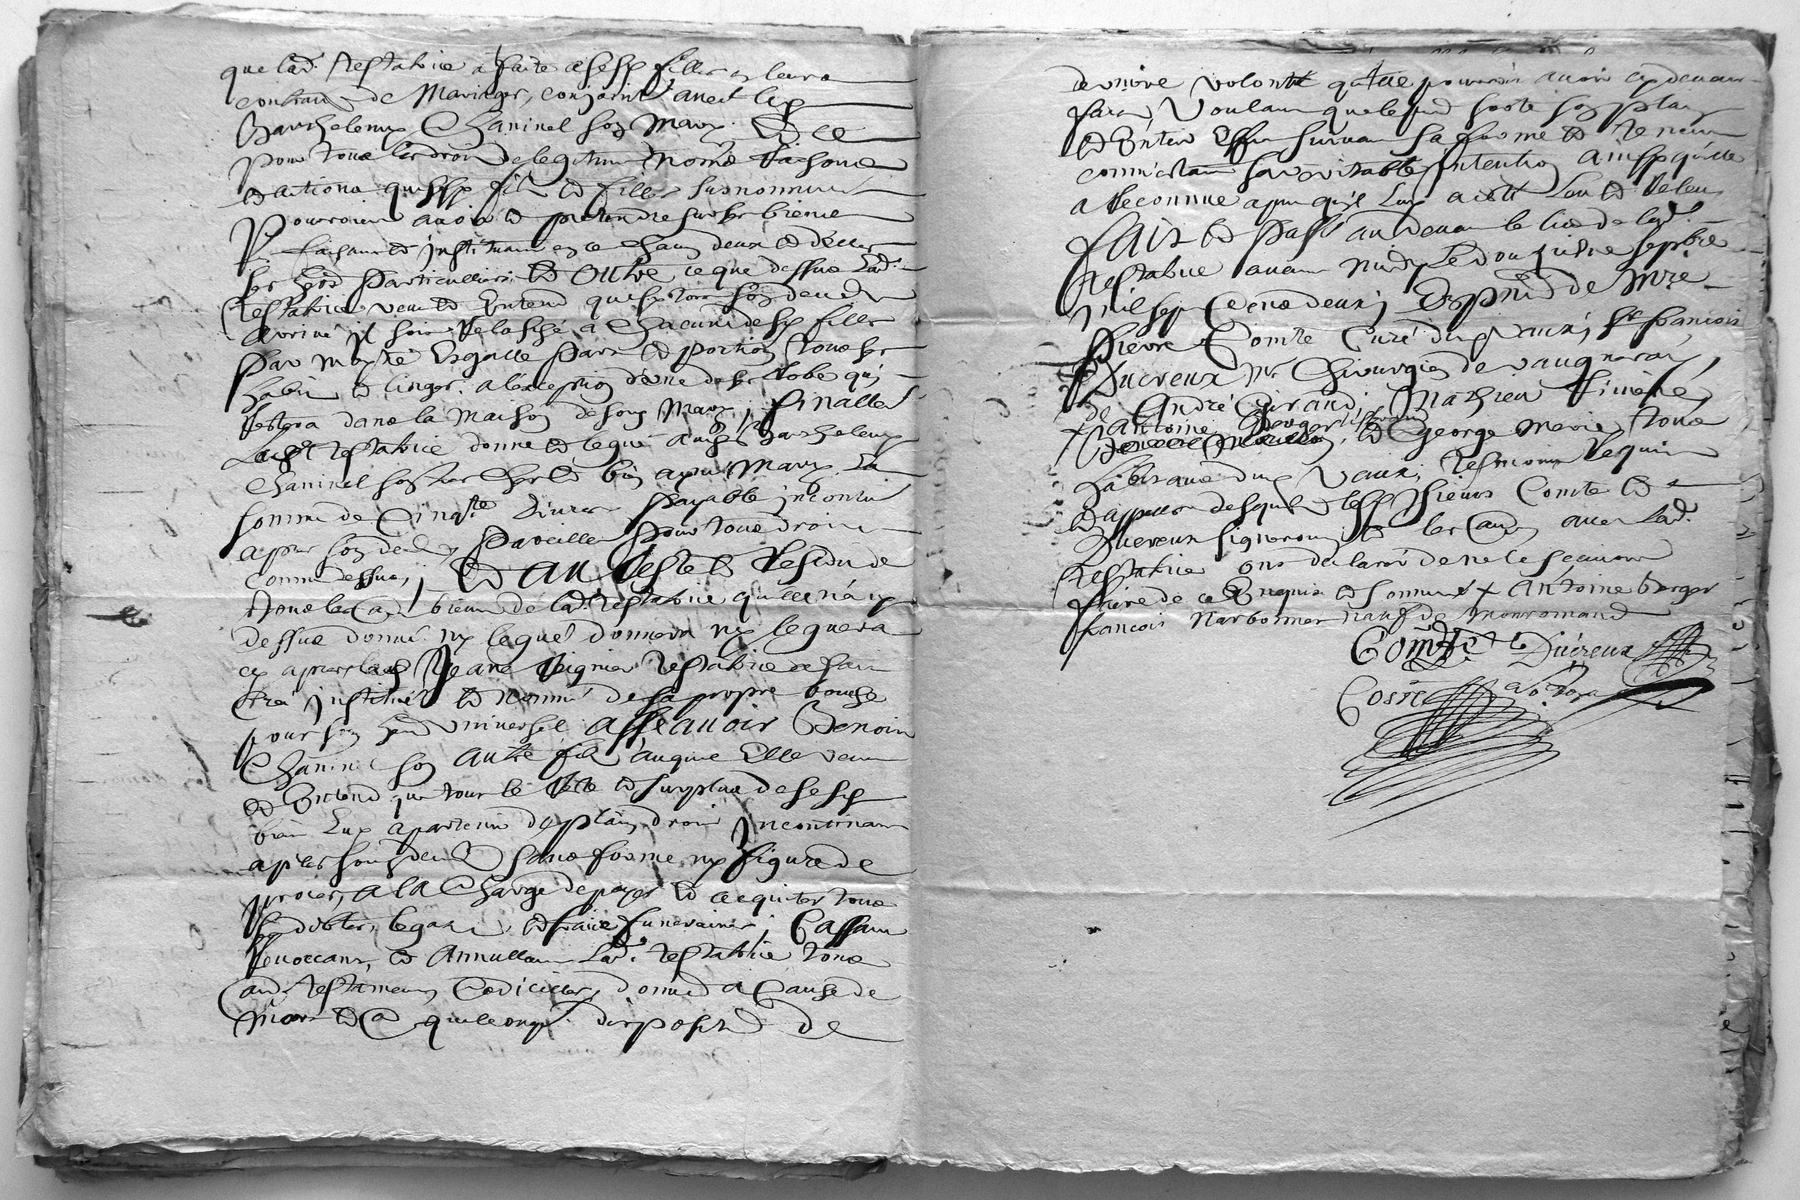 que lad. testatrice a faite a sesd filles en leurs
contrats de Mariages, conjoinct avecq led
Barthelemy Chaninel son Mary. Et ce
pour tous les droits de legitime noms raisons
et actions que sesd fils et filles susnommes
pourroient avoir et pretendre sur ses biens
faisant et instituant en ce chacun deux et d'elles
ses herd particulliers et outre ce que dessus lad.
testatrice veut et entend que son deceds
arrivé il soit relasché a chacune desd filles
par moytié esgalle part et portion tous ses
habits et linges a l'exception d'une de ses robe qui
restera dans la maison de son Mary; finallemt
lad testatrice donne et legue aud Barthelemy
Chaninel son tres cher et bien aymé Mary la
somme de Cinqte livres payable incontint
apres son deceds pareillemt pour tous droits
comme dessus; et au reste et residu de
tous les biens de lad. testatrice qu'elle n'a cy
dessus donné ny legué donnera ny leguera
cy apres lad Jeane Vignier testatrice a fait
créé institué et nommé de sa propre bouche
pour son herd universel assavoir Benoist
Chaninel son autre fils auquel elle veut
et entend que tout le reste et surplus de sesd
biens luy apartenir de plain droit incontinant
apres son deceds sans forme ny figure de
proces, a la charge de payer et acquiter tous
ses debtes, legats, et frais funeraires; Cassant
revoccant, et annullant lad. testatrice tous
aud testaments Codicilles, donnes a cause de
mort et a quelconqs disposions de
derniere volonté qu'elle pourroit avoir cy devant
fait, Voulant que le pnt sorte son plain
et entier effet suivant sa forme et teneur
comme estant sa veritable intention ainsy qu'elle
a reconnue apres qu'il luy a esté leu et releu
fait et passé aud Vaux le lieu de lad.
testatrice avant midy le septbre
mil sept cens deux; En pnce de Mre
pierre Comte Curé dud vaux; Sr francois
Ducreux Mr Chirurgien de vaugneray,
André Girand; Mathieu
Antoine Berger
et George Marie, tous
habitans dud Vaux; tesmoins requis
et appellés desquels lesd sieurs Comte et
Ducreux signeront et les autres avec lad.
testatrice ont declaré de ne le scavoir
faire de ce enquis et sommés + Antoine berger
francois Narbonnet natif de monromand
Comte Ducreux